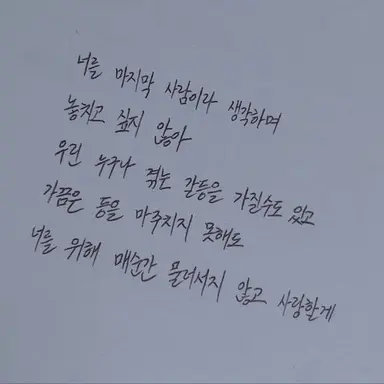 너를 마지막 사람이라 생각하며
놓치고 싶지 않아
우린 누구나 겪는 갈등을 가질수도 있고
가끔은 등을 마주치지 못해도
너를 위해 매순간 물러서지 않고 사랑할게